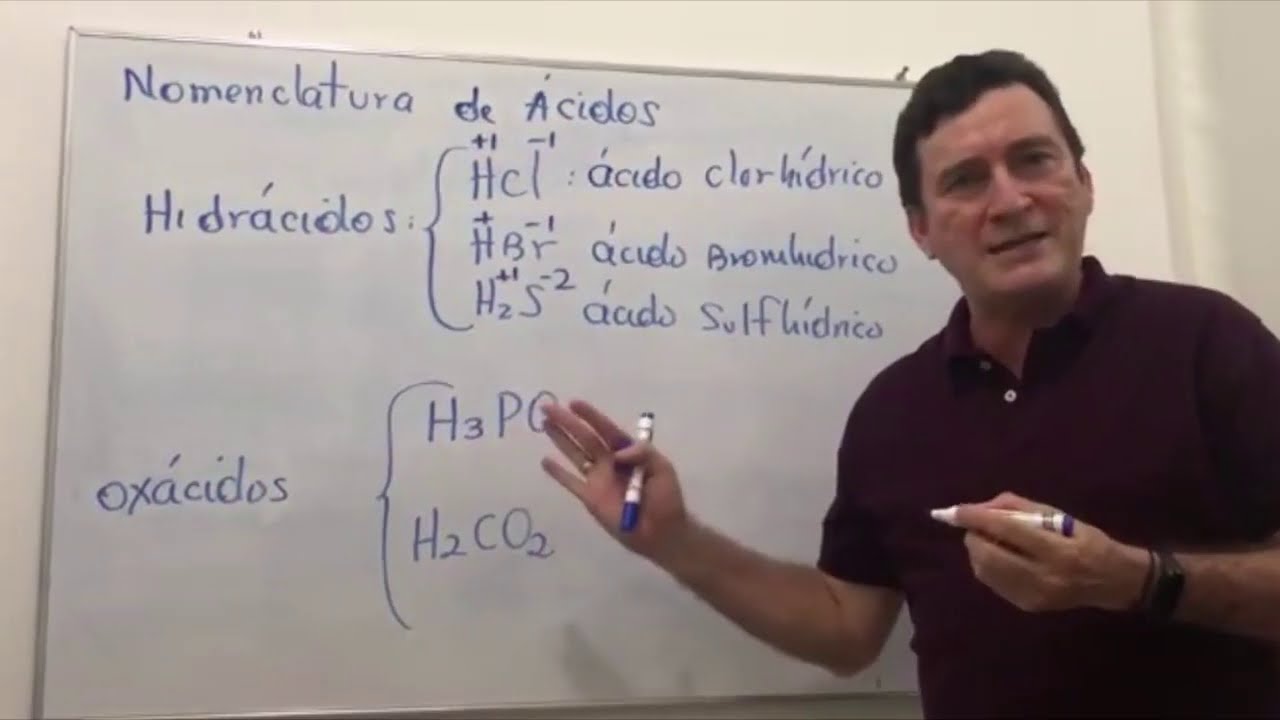 Nomenclatura de Ácidos
Hidrácidos:
+1 -1
HCl : ácido clorhídrico
+ -1
HBr ácido Bromhidrico
+1 -2
H2S ácido Sulfhídrico
oxácidos
H3PO
H2CO2